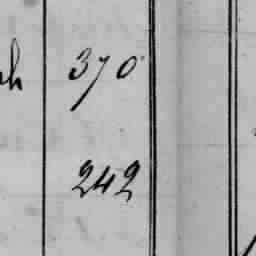 370
242